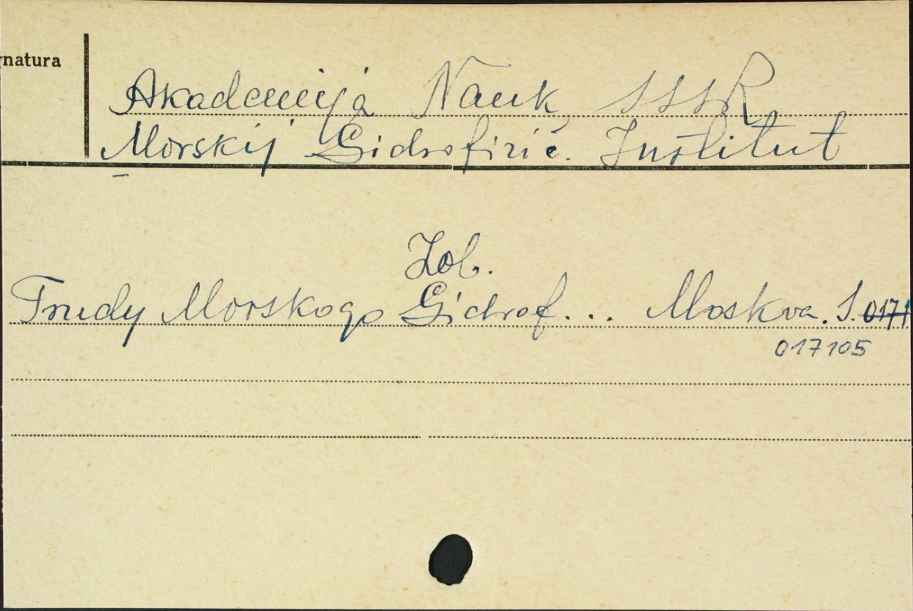 natura
Akademija Nauk SSSR
Morskij Gidrofizič. Institut
Zob.
Trudy Morskogo Gidrof... Moskva. S. 0171
017105